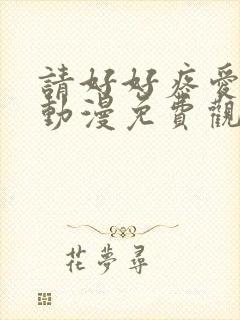 請好好疼愛
動漫免費觀
花夢尋